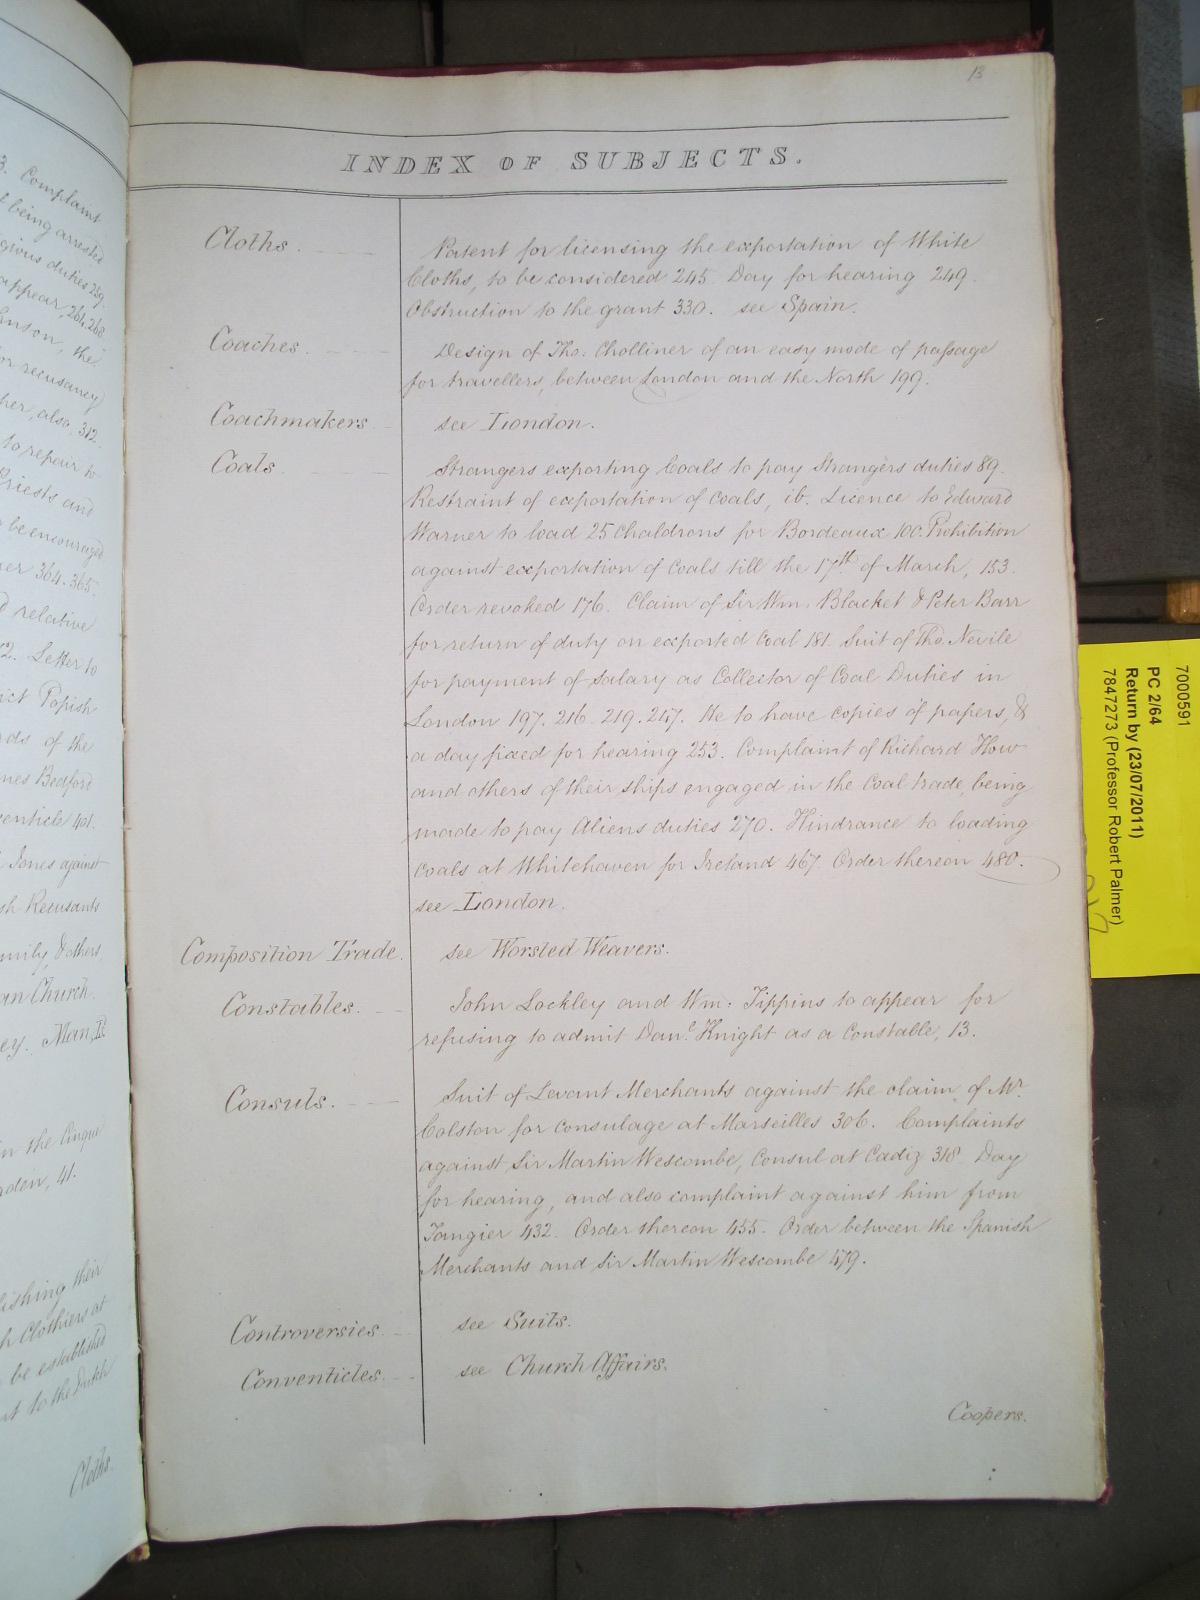 13
INDEX OF SUBJECTS.
Cloths.
Patent for licensing the exportation of White
Cloths, to be considered 245. Day for hearing 249.
Obstruction to the grant 330. see Spain.
Coaches.
Design of Tho. Cholliner of an easy mode of passage
for travellers, between London and the North 199.
Coachmakers
see London.
Coals.
Strangers exporting Coals to pay Strangers duties 89.
Restraint of exportation of Coals, ib. Licence to Edward
Warner to load 25 Chaldrons for Bordeaux 100. Prohibition
against exportation of Coals till the 17th of March, 153.
Order revoked 176. Claim of Sir Wm. Blacket & Peter Barr
for return of duty on exported Coal 181. Suit of Tho. Nevile
for payment of Salary as Collector of Coal Duties in
London 197. 216. 219. 247. He to have copies of papers, &
a day fixed for hearing 253. Complaint of Richard How
and others of their ships engaged in the Coal trade, being
made to pay Aliens duties 270. Hindrance to loading
Coals at Whitehaven for Ireland 467. Order thereon 480.
see London.
Composition Trade.
see Worsted Weavers.
Constables.
John Lockley and Wm. Tippins to appear for
refusing to admit Danl. Knight as a Constable, 13.
Consuls.
Suit of Levant Merchants against the claim of Mr.
Colston for consulage at Marseilles 306. Complaints
against Sir Martin Wescombe, Consul at Cadiz 318. Day
for hearing, and also complaint against him from
Tangier 432. Order thereon 455. Order between the Spanish
Merchants and Sir Martin Wescombe 479.
Controversies.
see Suits.
Conventicles.
see Church Affairs.
Coopers.
3. Complaint
being arrested
gious duties 259.
appear, 264. 268
nson, the
for recusancy
her, also, 312.
to repair to
Priests and
be encouraged
er 364. 365.
relative
2. Letter to
ict Popish
ds of the
mes Bedford
venticle 401.
Jones against
sh Recusants
mily, & others
an Church.
ey. Man, I.
in the Cinque
rden, 41.
lishing their
h Clothiers at
be established
nt to the Dutch
Cloths.
7000591
PC 2/64
Return by (23/07/2011)
7847273 (Professor Robert Palmer)